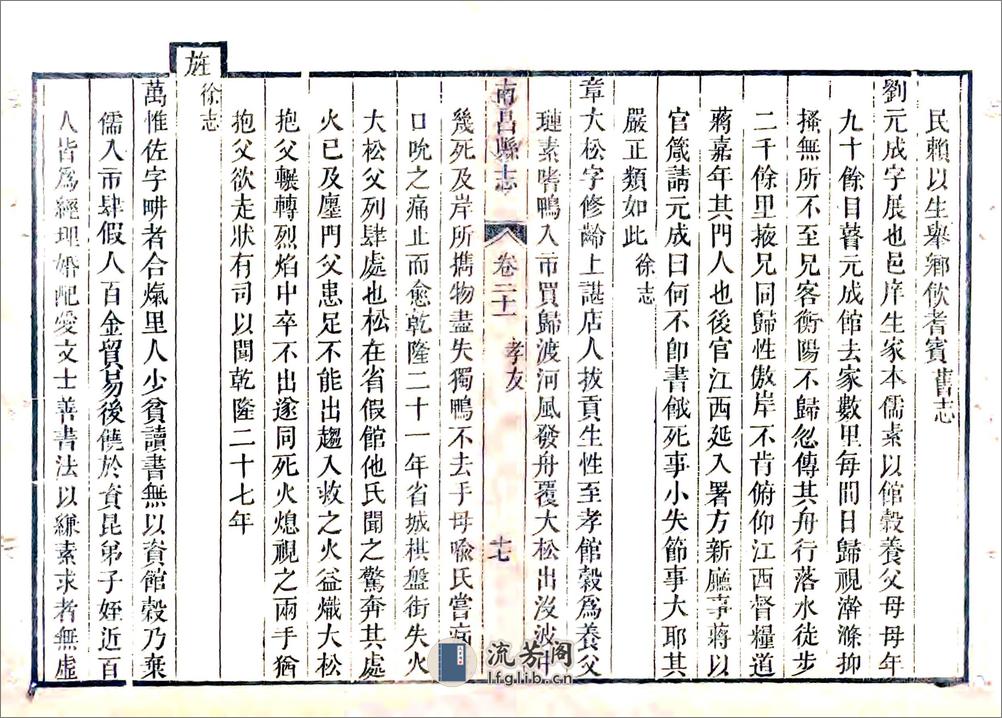 民賴以生舉鄉飲耆賓 舊志
劉元成字展也邑庠生家本儒素以館穀養父母母年
九十餘目瞽元成館去家數里每間日歸視滌滌抑
搔無所不至兄客衡陽不歸忽傳其舟行落水徒步
二千餘里掖兄同歸性傲岸不肯俯仰江西督糧道
蔣嘉年其門人也後官江西延入署方新廳事蔣以
官箴請元成曰何不卽書餓死事小失節事大耶其
嚴正類如此 徐志
章大松字修齡上諶店人拔貢生性至孝館穀爲養父
璉素嗜鴨入市買歸渡河風發舟覆大松出沒波中
幾死及岸所擕物盡失獨鴨不去手母喻氏嘗病
南昌縣志 卷二十一 孝友 十七
口吮之痛止而愈乾隆二十一年省城棋盤街失火
大松父列肆處也松在省假館他氏聞之驚奔其處
火已及廛門父患足不能出趨入救之火益熾大松
抱父輾轉烈焰中卒不出遂同死火熄視之兩手猶
抱父欲走狀有司以聞乾隆二十七年
旌 徐志
萬惟佐字畊者合熂里人少貧讀書無以資館穀乃棄
儒入市肆假人百金貿易後饒於資昆弟子姪近百
人皆爲經理婚配愛文士善書法以縑素求者無虛
流芳阁
lfglib.cn